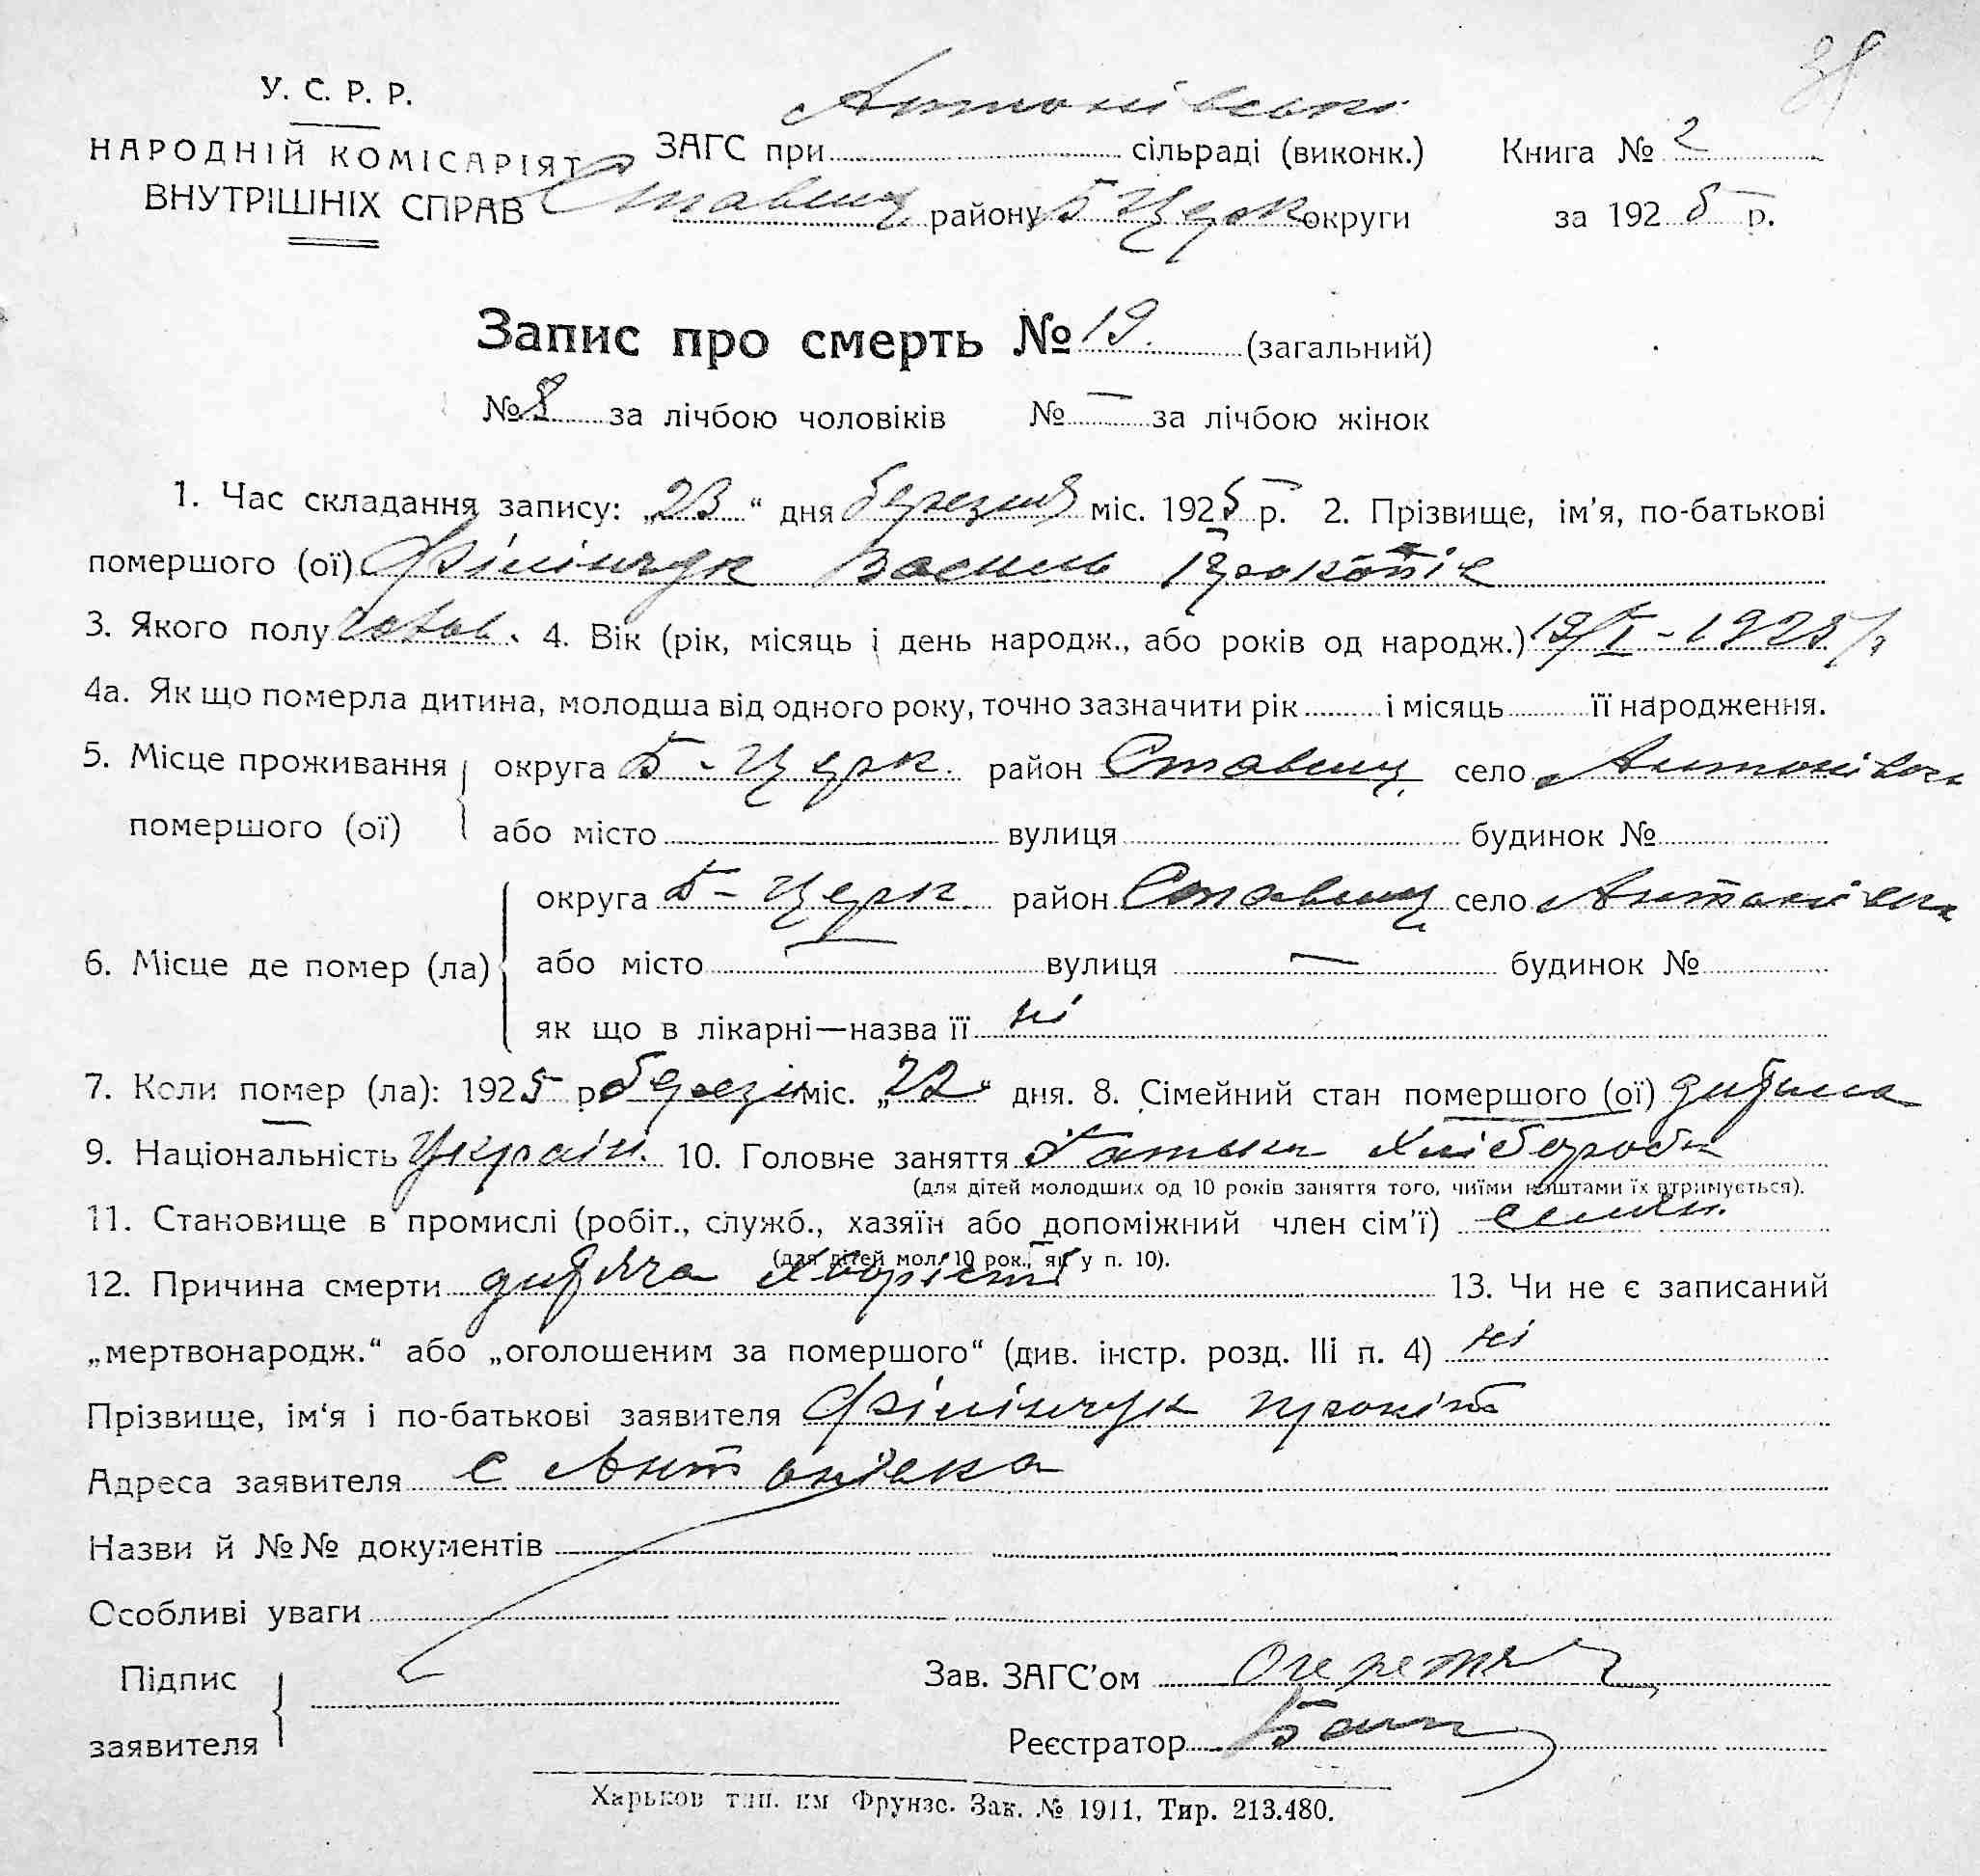 38
У. С. Р. Р.
Антонівські
НАРОДНІЙ КОМІСАРІЯТ ЗАГС при сільраді (виконк.) Книга № 2
ВНУТРІШНІХ СПРАВ Ставищ району Б Церк округи за 1925 р.
Запис про смерть № 19. (загальний)
№ 8 за лічбою чоловіків № — за лічбою жінок
1. Час складання запису: „23“ дня березня міс. 1925 р. 2. Прізвище, ім'я, по-батькові
помершого (ої) Філінчук Василь
3. Якого полу чолов. 4. Вік (рік, місяць і день народж., або років од народж.) 19/I - 1923 р
4а. Як що померла дитина, молодша від одного року, точно зазначити рік і місяць її народження.
5. Місце проживання округа Б - Церк. район Ставищ. село Антонівка
помершого (ої) або місто вулиця будинок №
округа Б - Церк. район Ставищ село Антонівка
6. Місце де помер (ла) або місто — вулиця — будинок №
як що в лікарні—назва її ні
7. Коли помер (ла): 1925 р березн міс. „22“ дня. 8. Сімейний стан помершого (ої) дитина
9. Національність Україн. 10. Головне заняття Батьки Хлібороби
(для дітей молодших од 10 років заняття того, чиїми коштами їх втримується).
11. Становище в промислі (робіт., служб., хазяїн або допоміжний член сім'ї)
(для дітей мол. 10 рок., як у п. 10).
12. Причина смерти дитяча хворість 13. Чи не є записаний
„мертвонародж.“ або „оголошеним за помершого“ (див. інстр. розд. III п. 4) ні
Прізвище, ім'я і по-батькові заявителя Філінчук Прокіп
Адреса заявителя с Антонівка
Назви й №№ документів
Особливі уваги
Підпис Зав. ЗАГС'ом
заявителя Реєстратор
Харьков тип. им Фрунзе. Зак. № 1911, Тир. 213.480.